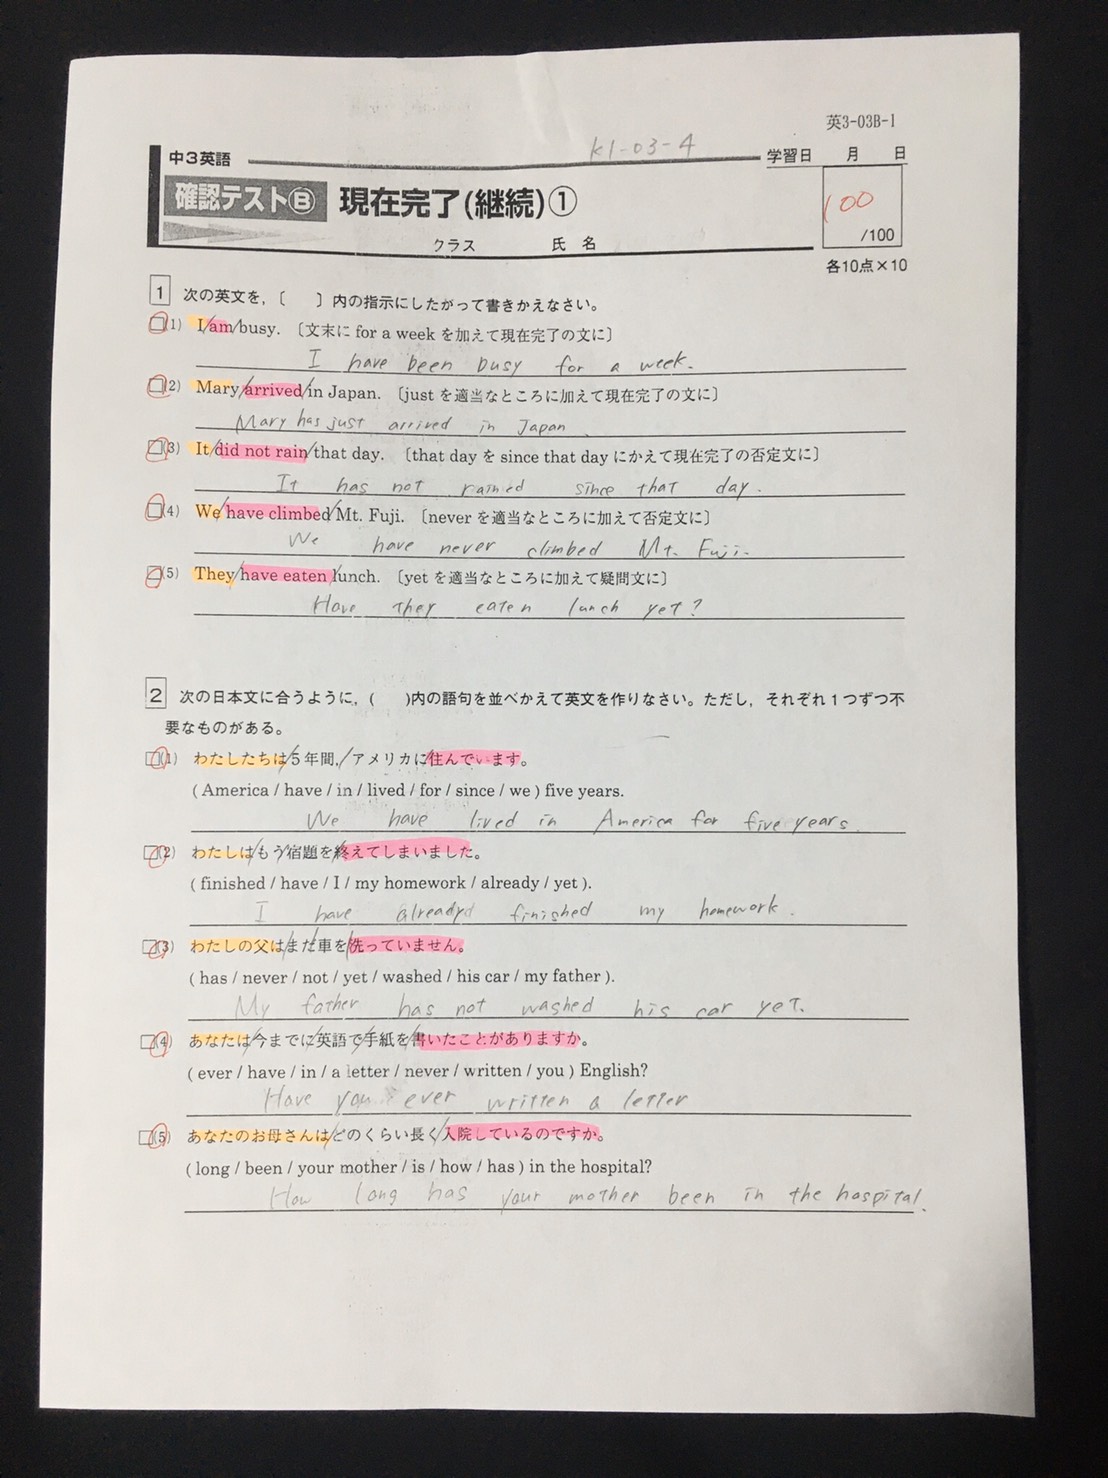 英3-03B-1
K1-03-4
中3英語 学習日 月 日
確認テストⒷ 現在完了(継続)①
100
/100
クラス 氏名
各10点×10
1 次の英文を,〔 〕内の指示にしたがって書きかえなさい。
(1) I/am/busy. 〔文末に for a week を加えて現在完了の文に〕
I have been busy for a week.
(2) Mary/arrived/in Japan. 〔just を適当なところに加えて現在完了の文に〕
Mary has just arrived in Japan.
(3) It/did not rain/that day. 〔that day を since that day にかえて現在完了の否定文に〕
It has not rained since that day.
(4) We/have climbed/Mt. Fuji. 〔never を適当なところに加えて否定文に〕
We have never climbed Mt. Fuji.
(5) They/have eaten/lunch. 〔yet を適当なところに加えて疑問文に〕
Have they eaten lunch yet?
2 次の日本文に合うように,( )内の語句を並べかえて英文を作りなさい。ただし,それぞれ1つずつ不
要なものがある。
(1) わたしたちは/5年間,/アメリカに/住んでいます。
( America / have / in / lived / for / since / we ) five years.
We have lived in America for five years.
(2) わたしは/もう/宿題を/終えてしまいました。
( finished / have / I / my homework / already / yet ).
I have already finished my homework.
(3) わたしの父は/まだ/車を/洗っていません。
( has / never / not / yet / washed / his car / my father ).
My father has not washed his car yet.
(4) あなたは/今までに/英語で/手紙を/書いたことがありますか。
( ever / have / in / a letter / never / written / you ) English?
Have you ever written a letter
(5) あなたのお母さんは/どのくらい長く/入院しているのですか。
( long / been / your mother / is / how / has ) in the hospital?
How long has your mother been in the hospital.